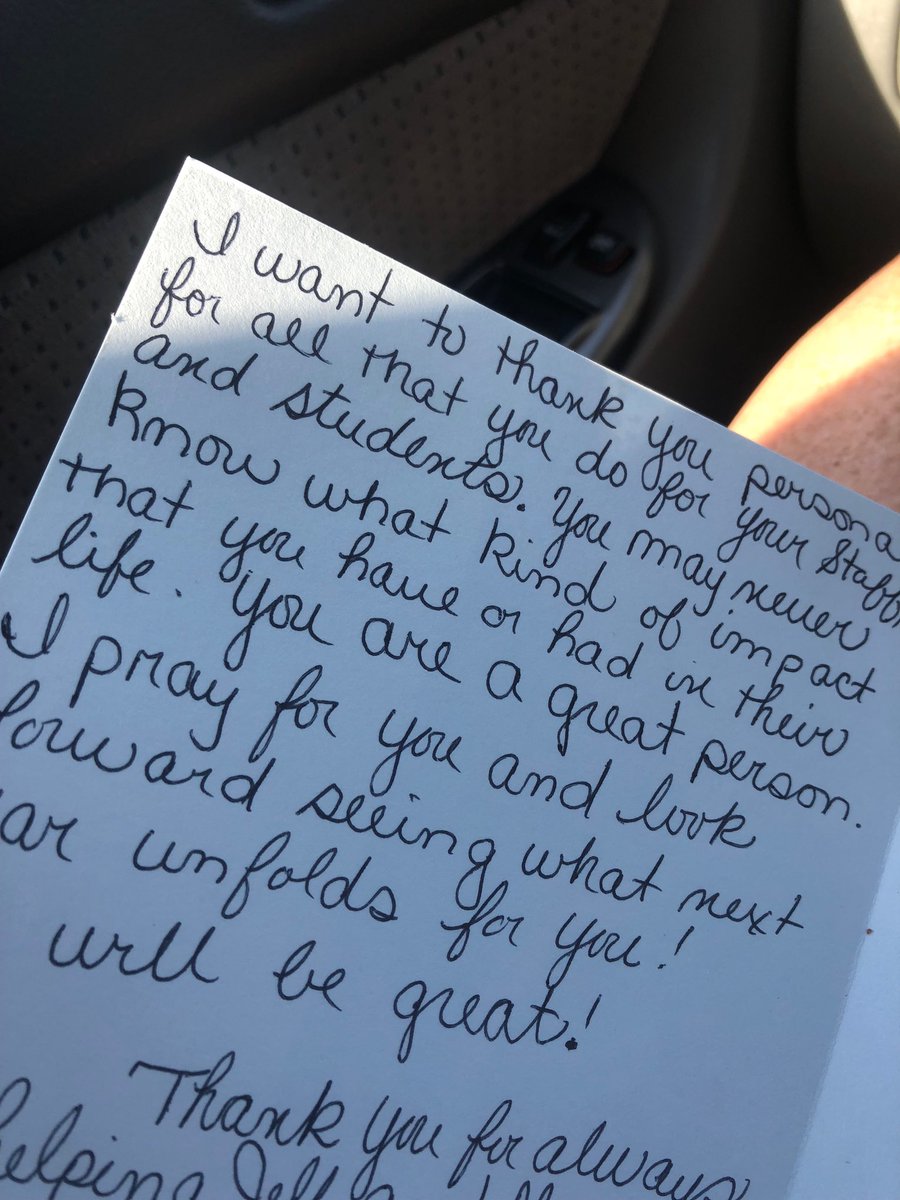 I want to thank you persona
for all that you do for your Staff
and students. You may never
know what kind of impact
that you have or had in their
life. You are a great person.
I pray for you and look
forward seeing what next
ar unfolds for you!
will be great!
Thank you for always
helping